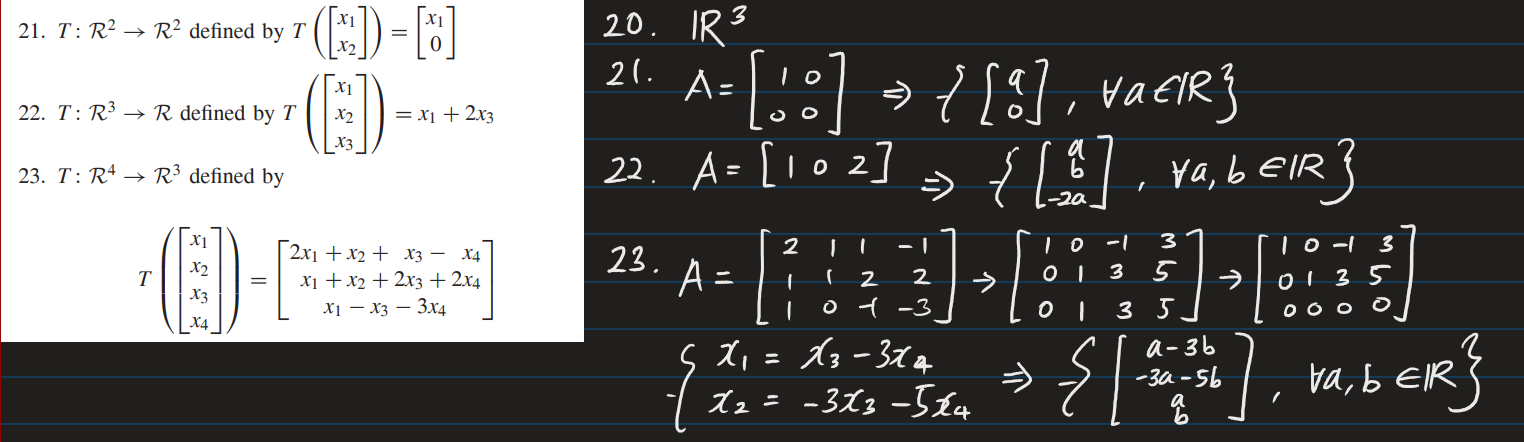 21. T: R² → R² defined by T([x₁; x₂]) = [x₁; 0]
22. T: R³ → R defined by T([x₁; x₂; x₃]) = x₁ + 2x₃
23. T: R⁴ → R³ defined by
T([x₁; x₂; x₃; x₄]) = [2x₁ + x₂ + x₃ − x₄; x₁ + x₂ + 2x₃ + 2x₄; x₁ − x₃ − 3x₄]
20. ℝ³
21. A = [1 0; 0 0] ⇒ {[a; 0], ∀a∈ℝ}
22. A = [1 0 2] ⇒ {[a; b; -2a], ∀a,b∈ℝ}
23. A = [2 1 1 -1; 1 1 2 2; 1 0 -1 -3] → [1 0 -1 3; 0 1 3 5; 0 1 3 5] → [1 0 -1 3; 0 1 3 5; 0 0 0 0]
{x₁ = x₃ - 3x₄; x₂ = -3x₃ - 5x₄ ⇒ {[a-3b; -3a-5b; a; b], ∀a,b∈ℝ}